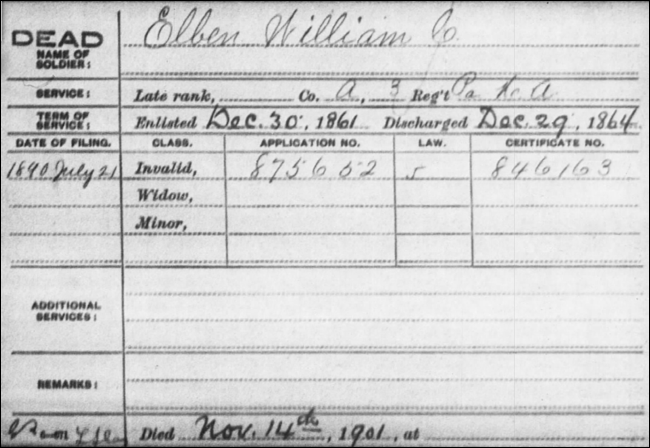 DEAD
NAME OF SOLDIER:
Elben William
SERVICE: Late rank, Co. A, 3 Reg't Pa. H. A.
TERM OF SERVICE: Enlisted Dec. 30, 1861 Discharged Dec. 29, 1864.
DATE OF FILING. CLASS. APPLICATION NO. LAW. CERTIFICATE NO.
1890 July 21 Invalid, 875652 846163
Widow,
Minor,
ADDITIONAL SERVICES:
REMARKS:
Died Nov. 14th, 1901, at